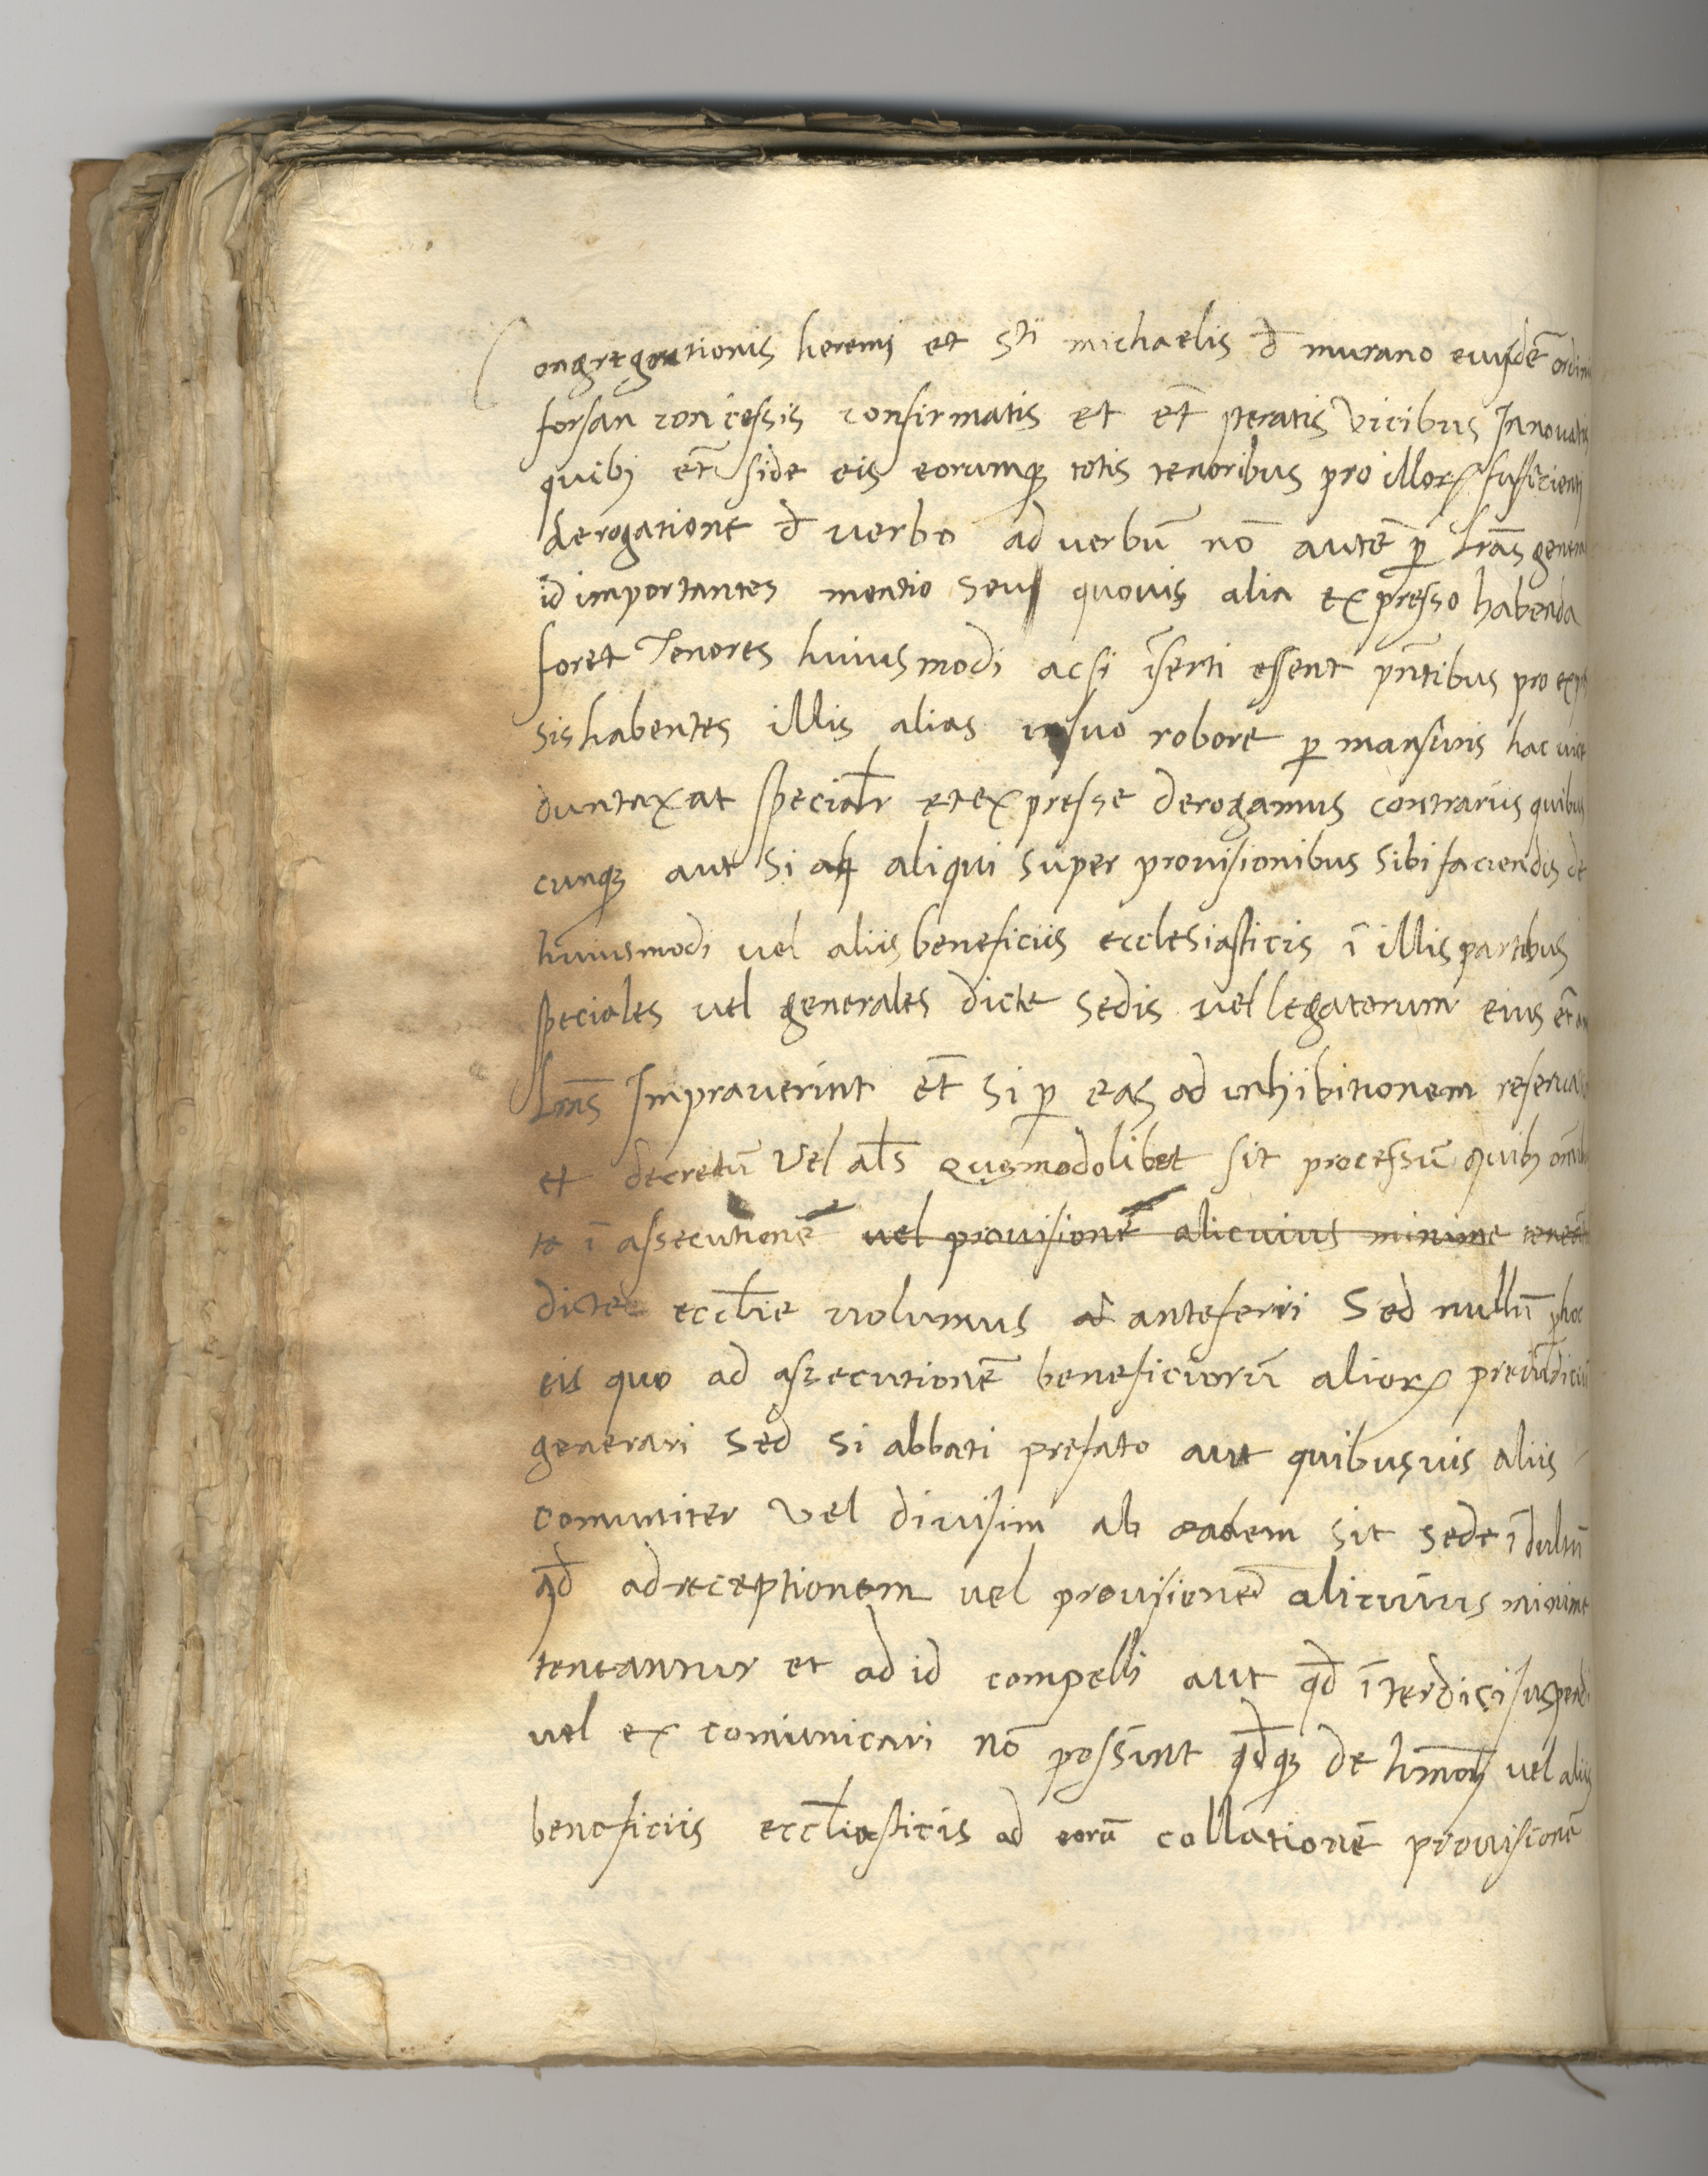 Congregationis heremi et Sti michaelis đ murano eiusdē ordini
forsan concessis confirmatis et et̄ iteratis vicibus Innovatis
quibȝ et̄ side eis eorumqȝ totis tenoribus pro illorꝝ sufficienti
derogatione đ verbo ad verbū nō autē ꝑ Lrās genera
id importantes mentio seu quovis alia expresso habenda
foret Tenores huiusmodi acsi īserti essent pn̄tibus pro exp
sis habentes illis alias insuo robore ꝑ mansuris hac vice
duntaxat specialr̄ etexpresse derogamus contrariis quibus
cunqȝ aut Si aliqui super provisionibus sibi faciendis de
huiusmodi vel aliis beneficiis ecclesiasticis ī illis partibus
speciales vel generales dicte sedis vel legatorum eius et̄
Lrās Impraverint et̄ si ꝑ eas ad inhibitionem reserva
et decretū vel al̄s qusmodolibet sit processū quibȝ
ī assecutionē vel provisionē alicuius minime teneā
dicte eccl̄ie volumus anteferri Sed nullū ꝑ hoc
eis quo ad assecutionē beneficiorū aliorꝝ preiūdiciū
generari Sed si abbati prefato aut quibusvis aliis
comuniter vel divisim ab eadem sit sede īdultū
qđ adreceptionem vel provisionē alicuius minime
teneantur et ad id compelli aut qđ īterdici suspendi
vel ex comunicari nō possint qđqȝ de hm̄oi vel aliis
beneficiis eccl̄iasticis ad eorū collationē provisionē